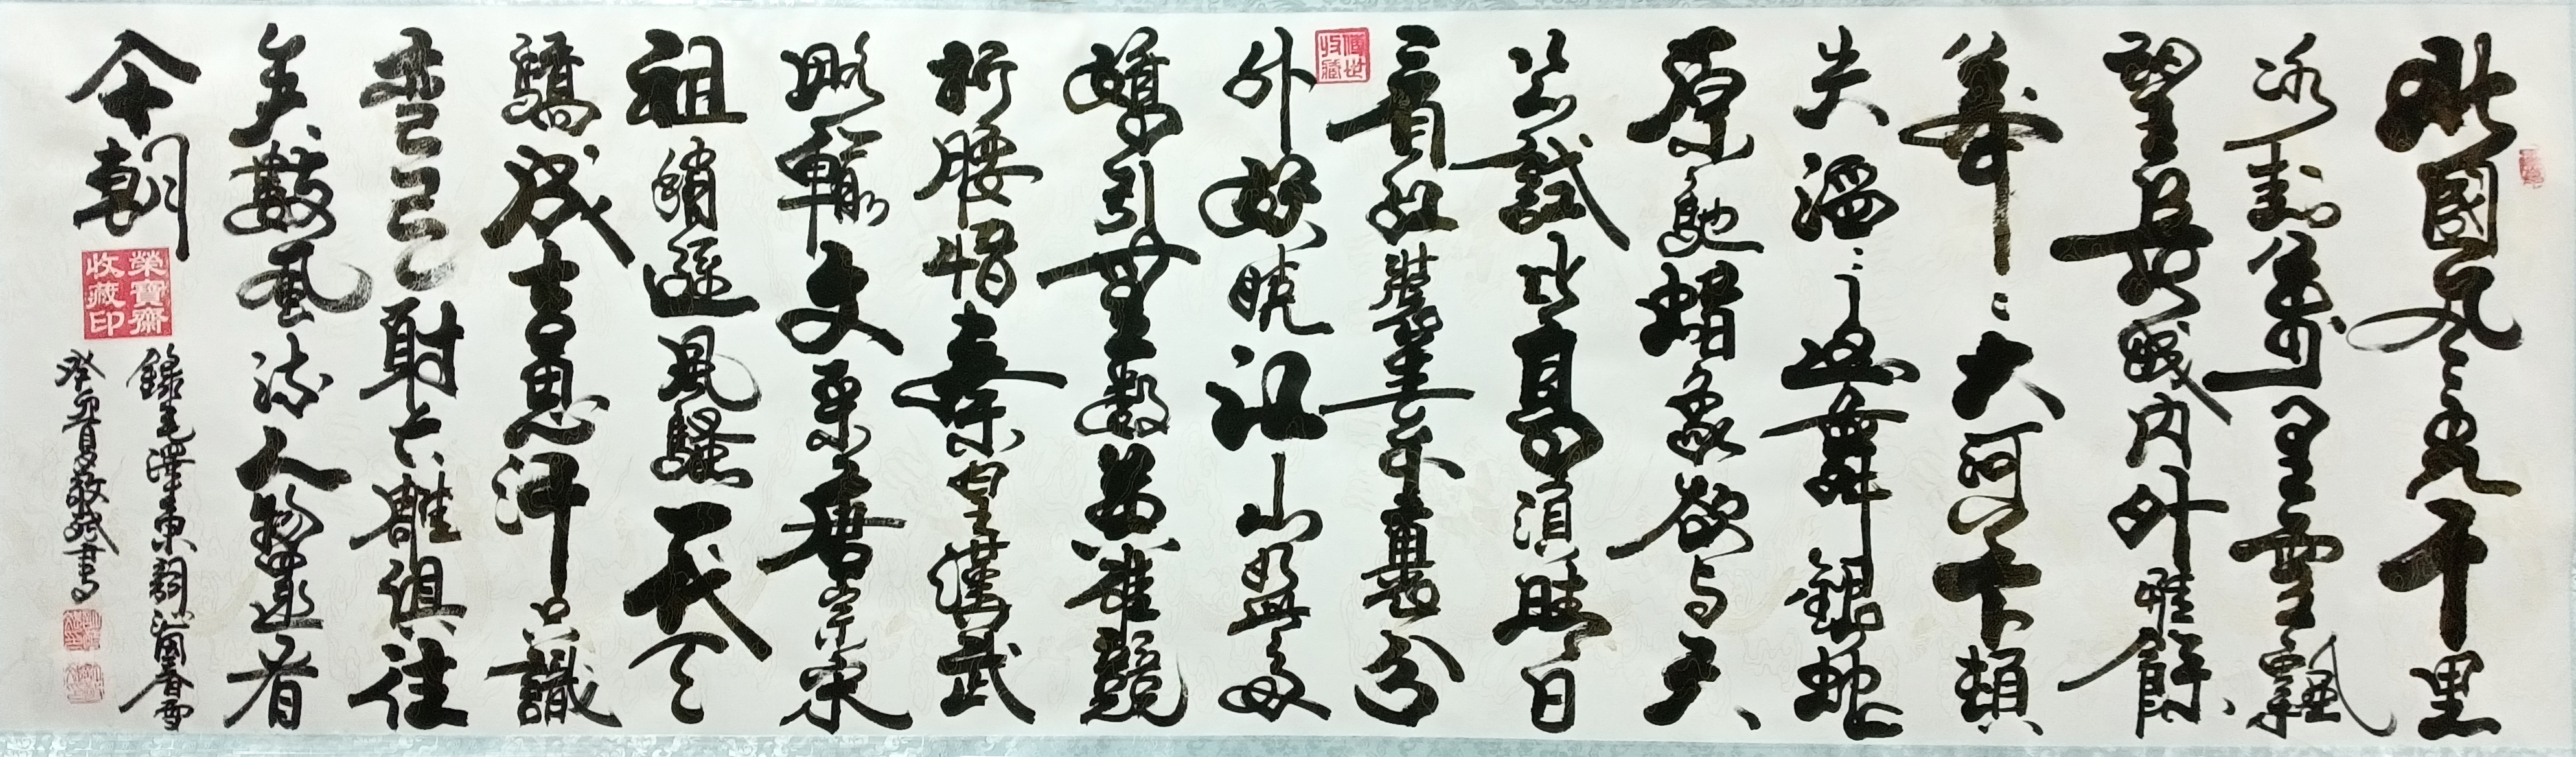 北國風光千里
冰封萬里雪飄
望長城内外唯餘
莽〻大河上下頓
失滔〻山舞銀蛇
原馳蜡象欲与天
公試比高須晴日
看紅裝素裹分
外妖嬈江山如此多
嬌引無數英雄競
折腰惜秦皇漢武
略輸文采唐宗宋
祖稍遜風騷一代天
驕成吉思汗只識
彎弓射大雕俱往
矣數風流人物還看
今朝
錄毛澤東詞沁園春雪
癸卯夏敬斌書
傳世收藏
榮寶齋收藏印